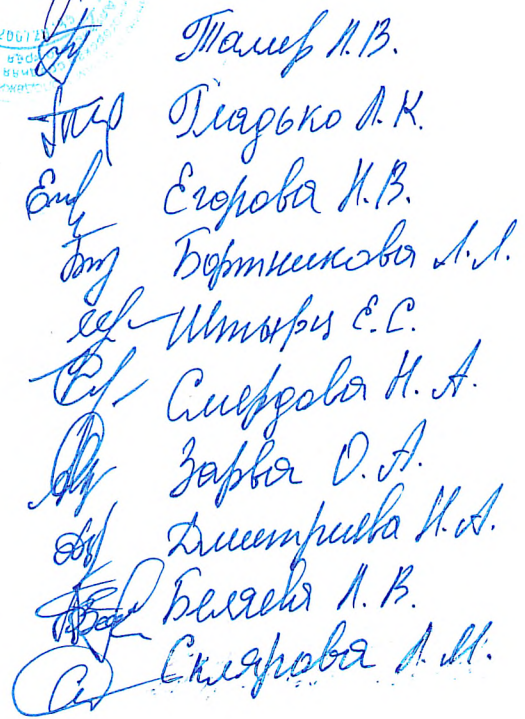 Талер Л.В.
Гладько Л.К.
Егорова Н.В.
Бортникова Л.Л.
Штырц Е.С.
Смердова Н.А.
Зарва О.А.
Дмитриева Н.А.
Беляева Л.В.
Склярова Л.М.